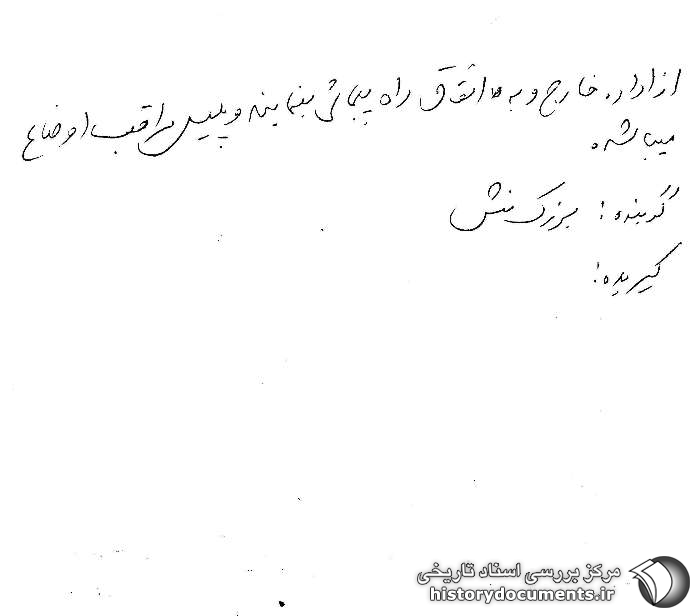 از اداره خارج و به اتفاق راه پیمائی بنمایند و پلیس مراقب اوضاع
میباشد.
گوینده: بزرگ منش
گیرنده:
مرکز بررسی اسناد تاریخی
historydocuments.ir